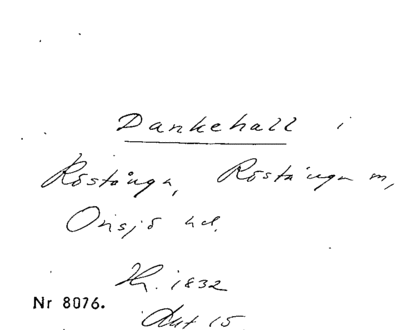 Dankehall i
Röstånga, Röstånga m,
Onsjö hd.
Hr. 1832
Nr 8076.
Akt 15